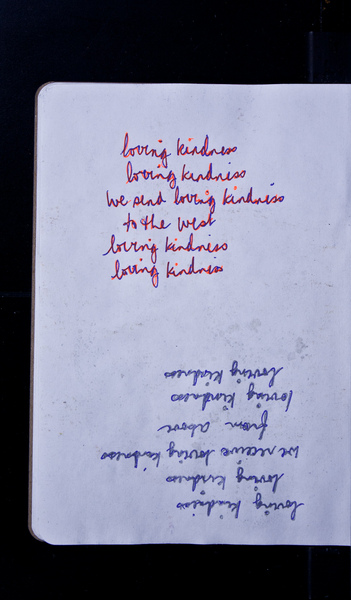 loving kindness
loving kindness
we send loving kindness
to the west
loving kindness
loving kindness
loving kindness
loving kindness
we receive loving kindness
from above
loving kindness
loving kindness